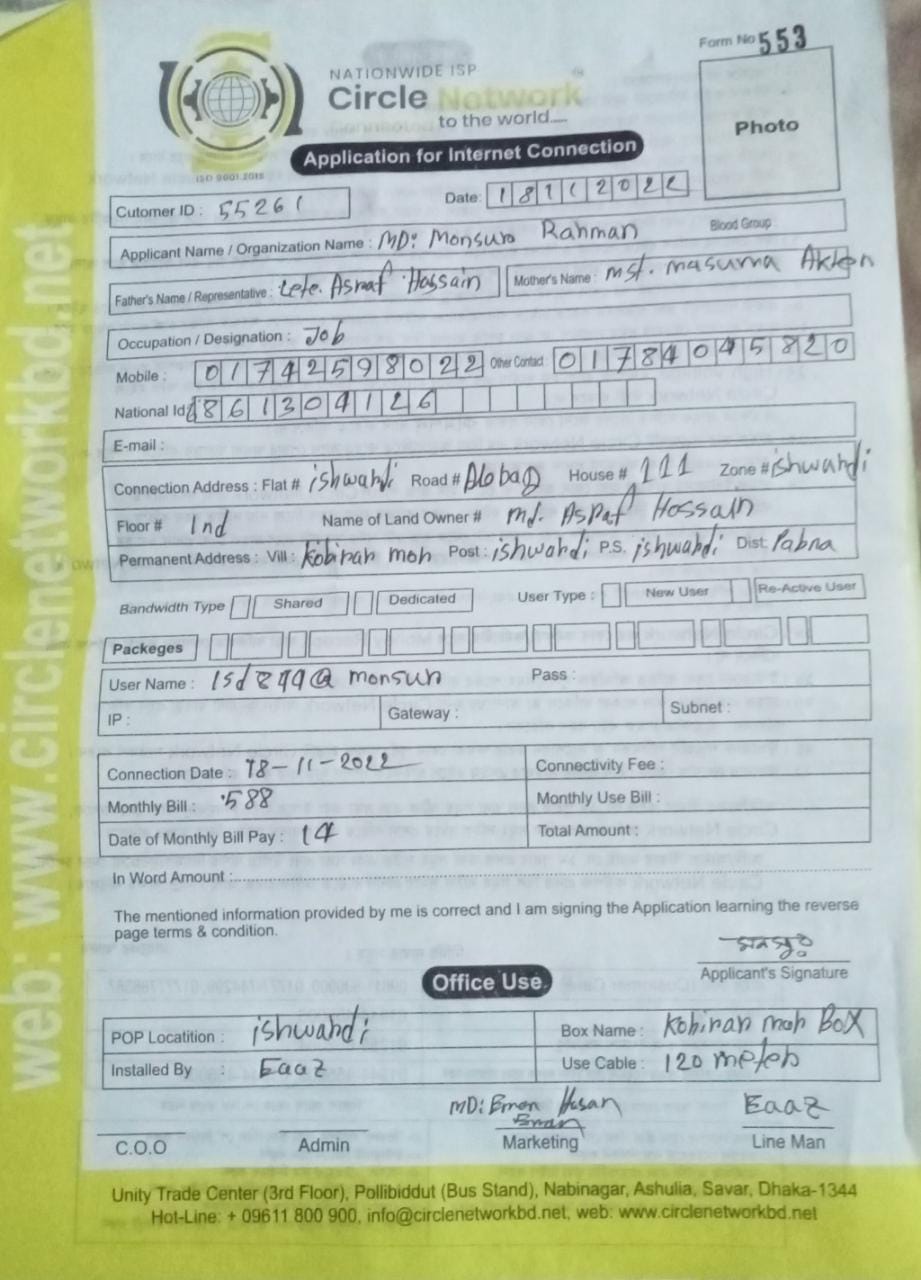 Form No 553
NATIONWIDE ISP
Circle Network
to the world.....
Photo
Application for Internet Connection
ISO 9001:2015
Cutomer ID : 55261
Date: 18112022
Applicant Name / Organization Name : MD: Monsuro Rahman Blood Group :
Father's Name / Representative : Lete. Asraf Hossain Mother's Name : mst. masuma Akten
Occupation / Designation : Job
Mobile : 01742598022 Other Contact : 01784045820
National Id 8613094126
E-mail :
Connection Address : Flat # ishwahdi Road # House # 111 Zone # ishwahdi
Floor # Ind Name of Land Owner # md. Asraf Hossain
Permanent Address : Vill : Kobiran moh Post : ishwahdi P.S. ishwahdi Dist: Pabna
Bandwidth Type Shared Dedicated User Type : New User Re-Active User
Packeges
User Name : Isd899@monsun Pass :
IP : Gateway : Subnet :
Connection Date : 18-11-2022 Connectivity Fee :
Monthly Bill : 588 Monthly Use Bill :
Date of Monthly Bill Pay : 14 Total Amount :
In Word Amount :
The mentioned information provided by me is correct and I am signing the Application learning the reverse
page terms & condition.
Applicant's Signature
Office Use
POP Locatition : ishwahdi Box Name : Kobiran moh BoX
Installed By : Eaaz Use Cable : 120 meteh
MD: Emon Hasan Eaaz
Eman
C.O.O Admin Marketing Line Man
Unity Trade Center (3rd Floor), Pollibiddut (Bus Stand), Nabinagar, Ashulia, Savar, Dhaka-1344
Hot-Line: + 09611 800 900, info@circlenetworkbd.net, web: www.circlenetworkbd.net
web: www.circlenetworkbd.net